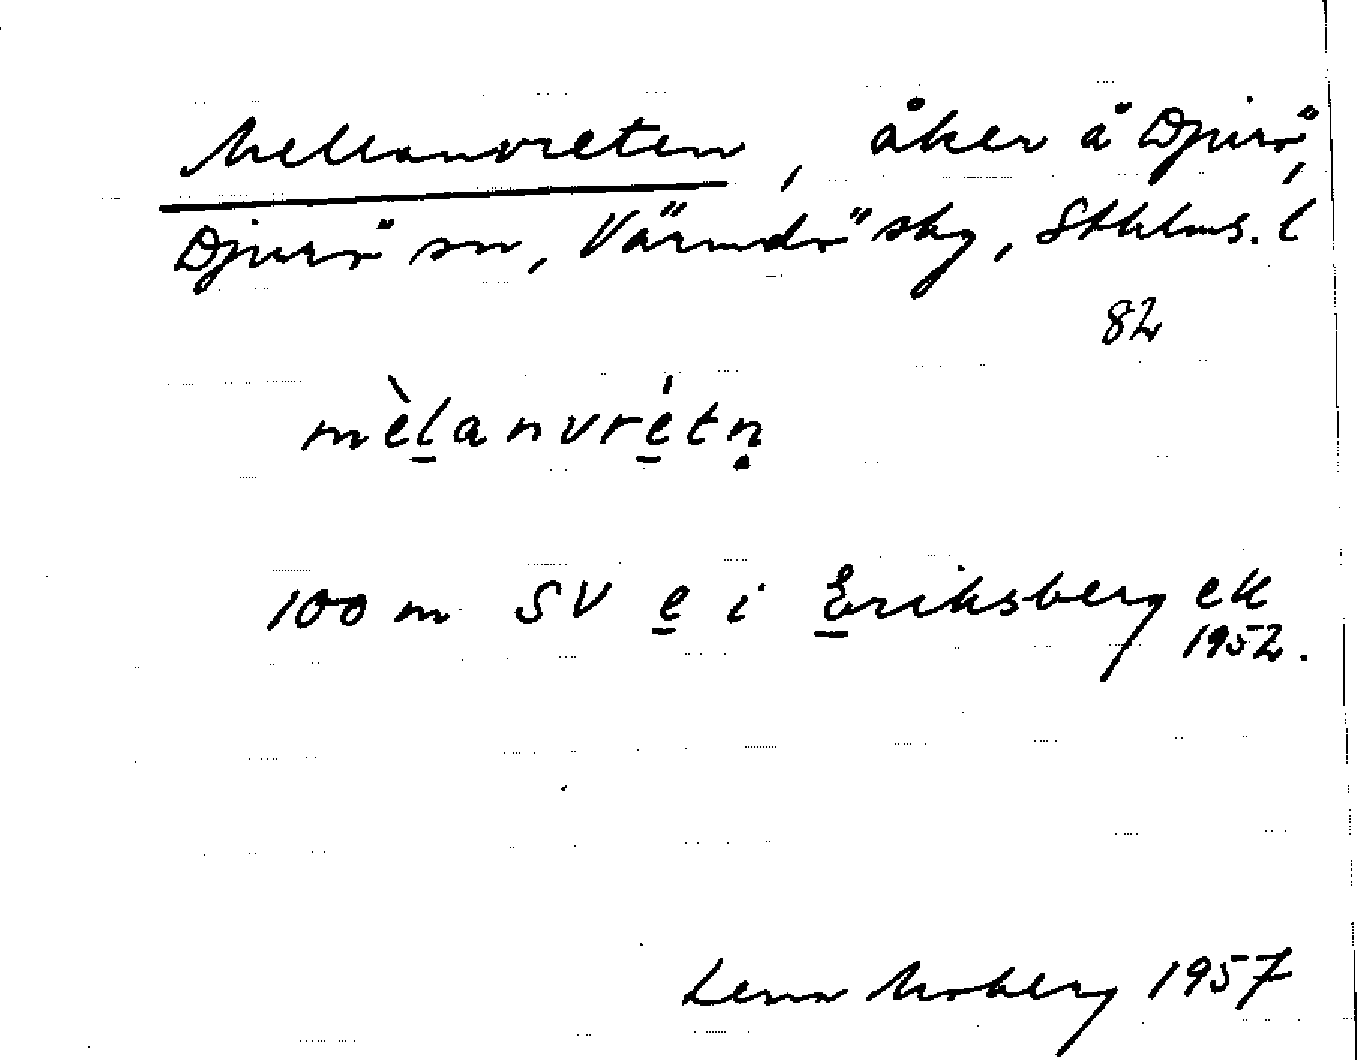 Mellanvreten, åker å Djurö,
Djurö sn, Värmdö skg, Sthlms. l
82
mèl̲anvré̲tṇ
100 m SV e̲ i E̲riksberg ek
1952.
Lena Moberg 1957